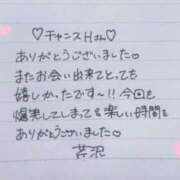 ♡チャンスHさん♡
ありがとうございました♡
またお会い出来てとっても
嬉しかったです〜!!今回も
爆笑してしまって楽しい時間を
ありがとうございました♡
芹沢